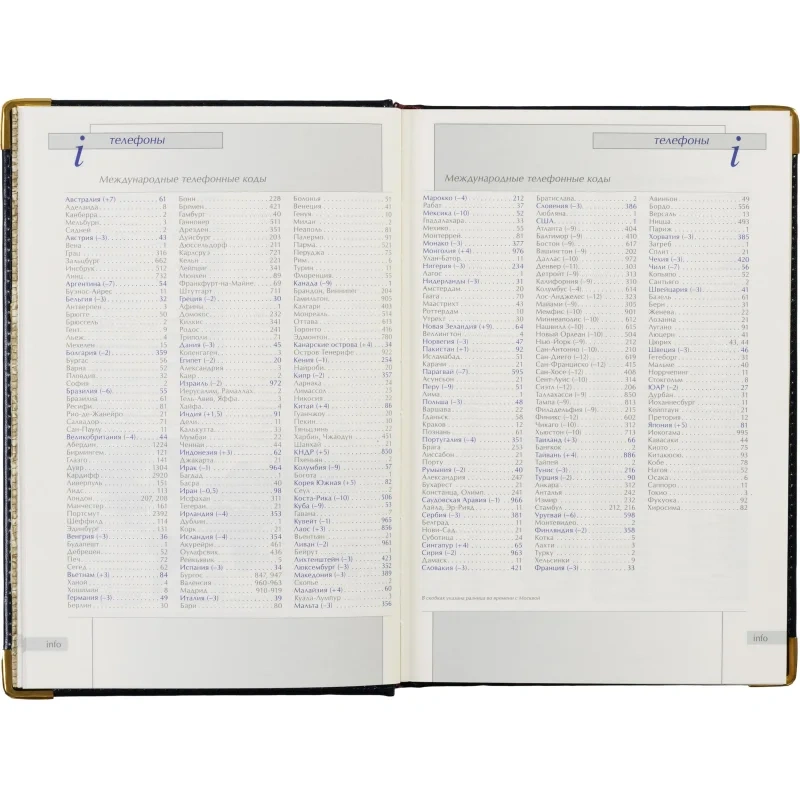 i
телефоны
Международные телефонные коды
Австралия (+7) 61
Аделаида 8
Канберра 2
Мельбурн 3
Сидней 2
Австрия (–3) 43
Вена 1
Грац 316
Зальцбург 662
Инсбрук 512
Линц 732
Аргентина (–7) 54
Буэнос-Айрес 11
Бельгия (–3) 32
Антверпен 3
Брюгге 50
Брюссель 2
Гент 9
Льеж 4
Мехелен 15
Болгария (–2) 359
Бургас 56
Варна 52
Пловдив 32
София 2
Бразилия (–6) 55
Бразилиа 61
Ресифи 81
Рио-де-Жанейро 21
Сальвадор 71
Сан-Паулу 11
Великобритания (–4) 44
Абердин 1224
Бирмингем 121
Глазго 141
Дувр 1304
Кардифф 2920
Ливерпуль 151
Лидс 113
Лондон 207, 208
Манчестер 161
Портсмут 2392
Шеффилд 114
Эдинбург 131
Венгрия (–3) 36
Будапешт 1
Дебрецен 52
Печ 72
Сегед 62
Вьетнам (+3) 84
Ханой 4
Хошимин 8
Германия (–3) 49
Берлин 30
Бонн 228
Бремен 421
Гамбург 40
Ганновер 511
Дрезден 351
Дуйсбург 203
Дюссельдорф 211
Карлсруэ 721
Кельн 221
Лейпциг 341
Мюнхен 89
Франкфурт-на-Майне 69
Штутгарт 711
Греция (–2) 30
Афины 1
Родос 241
Дания (–3) 45
Копенгаген 3
Египет (–2) 20
Александрия 3
Каир 2
Израиль (–2) 972
Иерусалим, Рамаллах 2
Тель-Авив, Яффа 3
Хайфа 4
Индия (+1,5) 91
Дели 11
Калькутта 33
Мумбаи 22
Ченнаи 44
Индонезия (+3) 62
Джакарта 21
Ирак (–1) 964
Багдад 1
Басра 40
Иран (–0,5) 98
Исфахан 311
Тегеран 21
Ирландия (–4) 353
Дублин 1
Корк 21
Исландия (–4) 354
Акурейри 461
Рейкьявик 5
Испания (–3) 34
Бургос 847, 947
Валенсия 960-963
Мадрид 910-919
Италия (–3) 39
Бари 80
Болонья 51
Венеция 41
Генуя 10
Милан 2
Неаполь 81
Палермо 91
Парма 521
Перуджа 75
Рим 6
Турин 11
Флоренция 55
Канада (–9) 1
Брандон, Виннипег 204
Гамильтон 905
Калгари 403
Монреаль 514
Оттава 613
Торонто 416
Эдмонтон 780
Канарские острова (+4) 34
Остров Тенерифе 922
Кения (–1) 254
Найроби 20
Кипр (–2) 357
Ларнака 24
Лимассол 25
Никосия 22
Китай (+4) 86
Гуанчжоу 20
Пекин 10
Харбин, Чжаодун 451
Шанхай 21
КНДР (+5) 850
Пхеньян 2
Колумбия (–9) 57
Богота 1
Корея Южная (+5) 82
Сеул 2
Коста-Рика (–10) 506
Куба (–9) 53
Гавана 7
Кувейт (–1) 965
Лаос (+3) 856
Вьентьян 21
Ливан (–2) 961
Бейрут 1
Лихтенштейн (–3) 423
Люксембург (–3) 352
Македония (–3) 389
Скопье 2
Малайзия (+4) 60
Куала-Лумпур 3
Мальта (–3) 356
info
телефоны
i
Международные телефонные коды
Марокко (–4) 212
Рабат 37
Мексика (–10) 52
Гвадалахара 33
Мехико 55
Монтеррей 81
Монако (–3) 377
Монголия (+4) 976
Улан-Батор 11
Нигерия (–3) 234
Лагос 1
Нидерланды (–3) 31
Амстердам 20
Гаага 70
Маастрихт 43
Роттердам 10
Утрехт 30
Новая Зеландия (+9) 64
Веллингтон 4
Норвегия (–3) 47
Пакистан (+1) 92
Исламабад 51
Карачи 21
Парагвай (–7) 595
Асунсьон 21
Перу (–9) 51
Лима 1
Польша (–3) 48
Варшава 22
Гданьск 58
Краков 12
Познань 61
Португалия (–4) 351
Брага 253
Лиссабон 21
Порту 22
Румыния (–2) 40
Александрия 247
Бухарест 21
Констанца, Олимп 241
Саудовская Аравия (–1) 966
Эр-Рияд 11
Сербия (–3) 381
Белград 11
Нови-Сад 21
Суботица 24
Сингапур (+4) 65
Сирия (–2) 963
Дамаск 11
Словакия (–3) 421
Братислава 2
Словения (–3) 386
Любляна 1
США 1
Атланта (–9) 404
Балтимор (–9) 410
Бостон (–9) 617
Вашингтон (–9) 202
Даллас (–10) 972
Денвер (–11) 303
Детройт (–9) 313
Колумбус (–4) 614
Лос-Анджелес (–12) 323
Майами (–9) 305
Мемфис (–10) 901
Миннеаполис (–10) 612
Нашвилл (–10) 615
Новый Орлеан (–10) 504
Нью-Йорк (–9) 212
Сан-Антонио (–10) 210
Сан-Диего (–12) 619
Сан-Франциско (–12) 415
Сан-Хосе (–12) 408
Сент-Луис (–10) 314
Сиэтл (–12) 206
Таллахасси (–9) 850
Тампа (–9) 813
Филадельфия (–9) 215
Финикс (–12) 602
Чикаго (–10) 312
Хьюстон (–10) 713
Таиланд (+3) 66
Бангкок 2
Тайвань (+4) 886
Тайпей 2
Тунис (–3) 216
Турция (–2) 90
Анкара 312
Анталья 242
Измир 232
Стамбул 212, 216
Уругвай (–6) 598
Монтевидео 2
Финляндия (–2) 358
Котка 5
Лахти 3
Турку 2
Хельсинки 9
Франция (–3) 33
Авиньон 49
Бордо 556
Версаль 13
Ницца 493
Париж 1
Хорватия (–3) 385
Загреб 1
Сплит 21
Чехия (–3) 420
Чили (–7) 56
Сантьяго 2
Швейцария (–3) 41
Базель 61
Берн 31
Женева 22
Лозанна 21
Лугано 91
Люцерн 41
Цюрих 43, 44
Швеция (–3) 46
Гетеборг 31
Мальме 40
Норрчепинг 11
Стокгольм 8
ЮАР (–2) 27
Дурбан 31
Йоханнесбург 11
Кейптаун 21
Претория 12
Япония (+5) 81
Иокогама 45
Кавасаки 44
Киото 75
Китакюсю 93
Кобе 78
Нагоя 52
Осака 6
Саппоро 11
Токио 3
Фукуока 92
Хиросима 82
В скобках указана разница во времени с Москвой
info